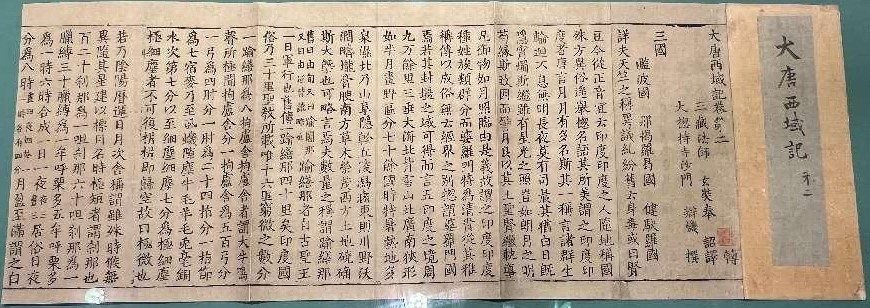 大唐西域記 卷二
大唐西域記卷第二
三藏法師 玄奘奉 詔譯
大總持寺沙門 辯機 撰
三國
濫波國 那揭羅曷國 健馱羅國
詳夫天竺之稱異議糺紛舊云身毒或曰賢
豆今從正音宜云印度印度之人隨地稱國
殊方異俗遙舉總名語其所美謂之印度印
度者唐言月月有多名斯其一稱言諸群生
輪迴不息無明長夜莫有司晨其猶白日既
隱宵燭斯繼雖有星光之照豈如朗月之明
苟緣斯致因而譬月良以其土聖賢繼軌導
凡御物如月照臨由是義故謂之印度印度
種姓族類群分而婆羅門特為清貴從其雅
稱傳以成俗無云經界之別總謂婆羅門國
焉若其封疆之域可得而言五印度之境周
九万餘里三垂大海北背雪山北廣南狹形
如半月畫野區分七十餘國時特暑熱地多
泉濕北乃山阜隱軫丘陵舄鹵東則川野沃
潤疇壠膏腴南方草木榮茂西方土地磽确
斯大概也可略言焉夫數量之稱謂踰繕那
舊曰由旬又曰踰闍那又曰由延皆訛略也踰繕那者自古聖王
一日軍行也舊傳一踰繕那四十里矣印度國
俗乃三十里聖教所載唯十六里窮微之數分
一踰繕那為八拘盧舍拘盧舍者謂大牛鳴
聲所極聞稱拘盧舍分一拘盧舍為五百弓分
一弓為四肘分一肘為二十四指分一指節
為七宿麥乃至虱蟣隙塵牛毛羊毛兔毫銅
水次第七分以至細塵細塵七分為極細塵
極細塵者不可復析析即歸空故曰極微也
若乃陰陽曆運日月次舍稱謂雖殊時候無
異隨其星建以標月名時極短者謂剎那也
百二十剎那為一呾剎那六十呾剎那為一
臘縛三十臘縛為一牟呼栗多五牟呼栗多
為一時六時合成一日一夜晝三夜三居俗日夜
分為八時晝四夜四於一一時各有四分月盈至滿謂之白